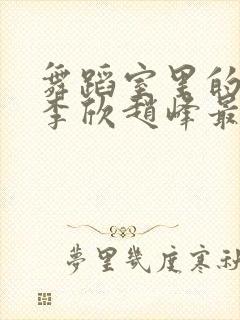 舞蹈室里的
李欣趙峰最
夢里幾度寒秋